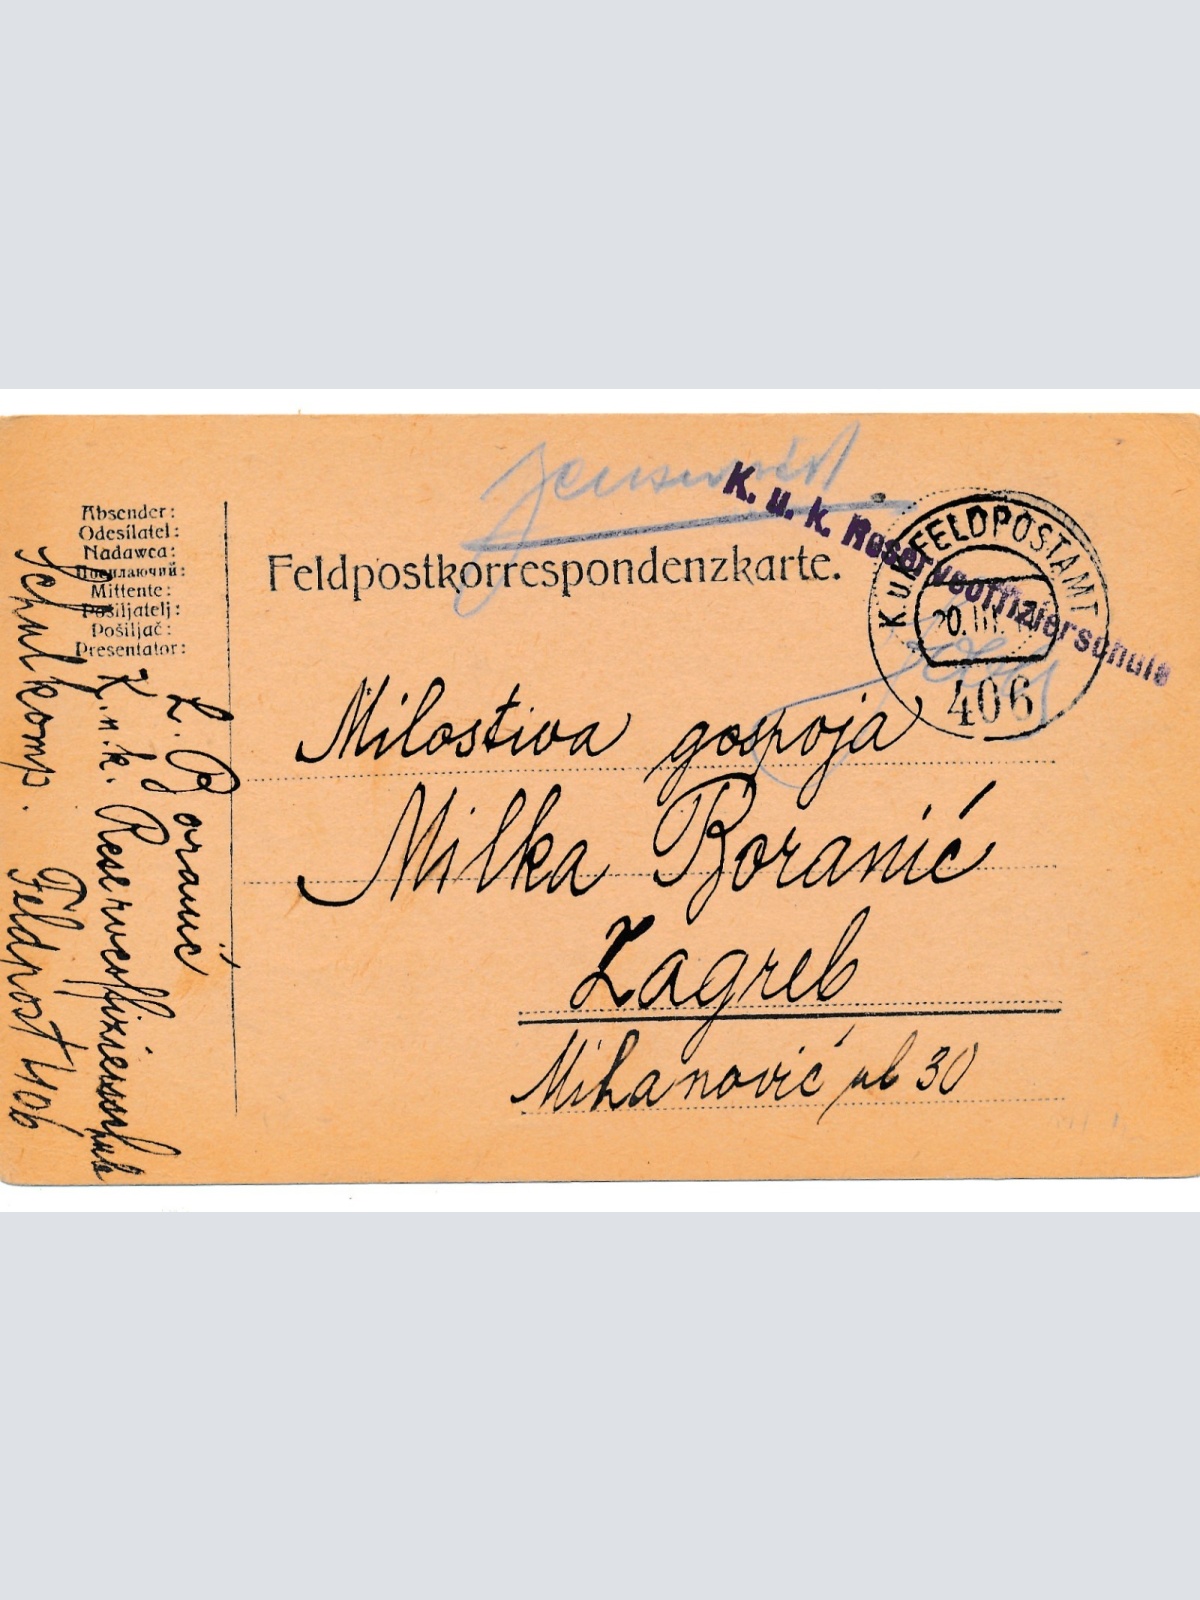 Zensuriert
K. u. k. Reserveoffizierschule
K. u. K. FELDPOSTAMT
20. III.
406
Absender:
Odesílatel:
Nadawca:
Посилаючий:
Mittente:
Pošiljatelj:
Pošiljač:
Presentator:
Feldpostkorrespondenzkarte.
L. Boranić
K. u. k. Reserveoffiziersschule
Schulkomp. Feldpost 406
Milostiva gospoja
Milka Boranić
Zagreb
Mihanović ul 30